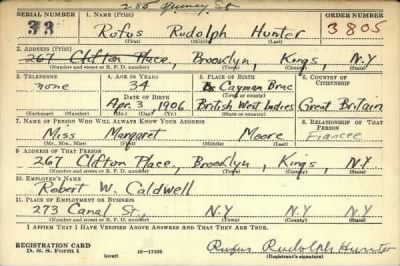 285 Quincy St
SERIAL NUMBER 1. NAME (Print) ORDER NUMBER
33 Rufus Rudolph Hunter 3805
(First) (Middle) (Last)
2. ADDRESS (Print)
267 Clifton Place, Brooklyn, Kings, N.Y
(Number and street or R. F. D. number) (Town) (County) (State)
3. TELEPHONE 4. AGE IN YEARS 5. PLACE OF BIRTH 6. COUNTRY OF CITIZENSHIP
none 34 Cayman Brac
DATE OF BIRTH (Town or county)
Apr. 3 1906 British West Indies Great Britain
(Exchange) (Number) (Mo.) (Day) (Yr.) (State or country)
7. NAME OF PERSON WHO WILL ALWAYS KNOW YOUR ADDRESS 8. RELATIONSHIP OF THAT PERSON
Miss Margaret Moore Fiancee
(Mr., Mrs., Miss) (First) (Middle) (Last)
9. ADDRESS OF THAT PERSON
267 Clifton Place, Brooklyn, Kings, N.Y
(Number and street or R. F. D. number) (Town) (County) (State)
10. EMPLOYER'S NAME
Robert W. Caldwell
11. PLACE OF EMPLOYMENT OR BUSINESS
273 Canal St., N.Y N.Y N.Y
(Number and street or R. F. D. number) (Town) (County) (State)
I AFFIRM THAT I HAVE VERIFIED ABOVE ANSWERS AND THAT THEY ARE TRUE.
REGISTRATION CARD Rufus Rudolph Hunter
D. S. S. Form 1 (over) 16-17105 (Registrant's signature)